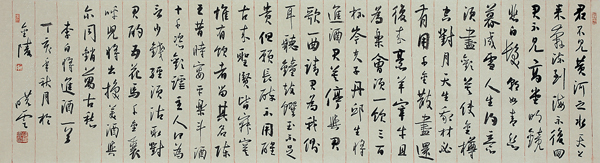 君不見黃河之水天上
來奔流到海不復回
君不見高堂明鏡
悲白髮朝如青絲
暮成雪人生得意
須盡歡莫使金樽
空對月天生我材必
有用千金散盡還
復來烹羊宰牛且
為樂會須一飲三百
杯岑夫子丹邱生將
進酒君莫停與君
歌一曲請君為我側
耳聽鐘鼓饌玉不足
貴但願長醉不用醒
古來聖賢皆寂寞
惟有飲者留其名陳
王昔時宴平樂斗酒
十千恣歡謔主人何為
言少錢徑須沽取對
君酌五花馬千金裘
呼兒將出換美酒與
尔同銷萬古愁
李白將進酒一首
丁亥年秋月於
金陵